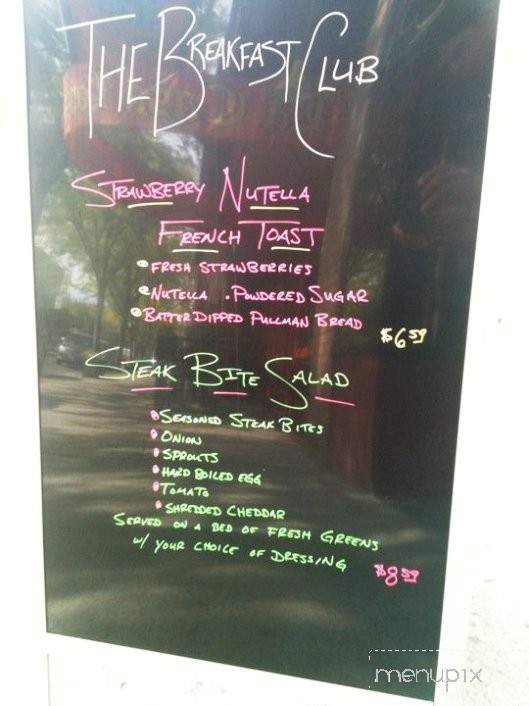 THE BREAKFAST CLUB
STRAWBERRY NUTELLA
FRENCH TOAST
• FRESH STRAWBERRIES
• NUTELLA • POWDERED SUGAR
• BATTER DIPPED PULLMAN BREAD
$6.59
STEAK BITE SALAD
• SEASONED STEAK BITES
• ONION
• SPROUTS
• HARD BOILED EGG
• TOMATO
• SHREDDED CHEDDAR
SERVED ON A BED OF FRESH GREENS
W/ YOUR CHOICE OF DRESSING
$8.59
menupix